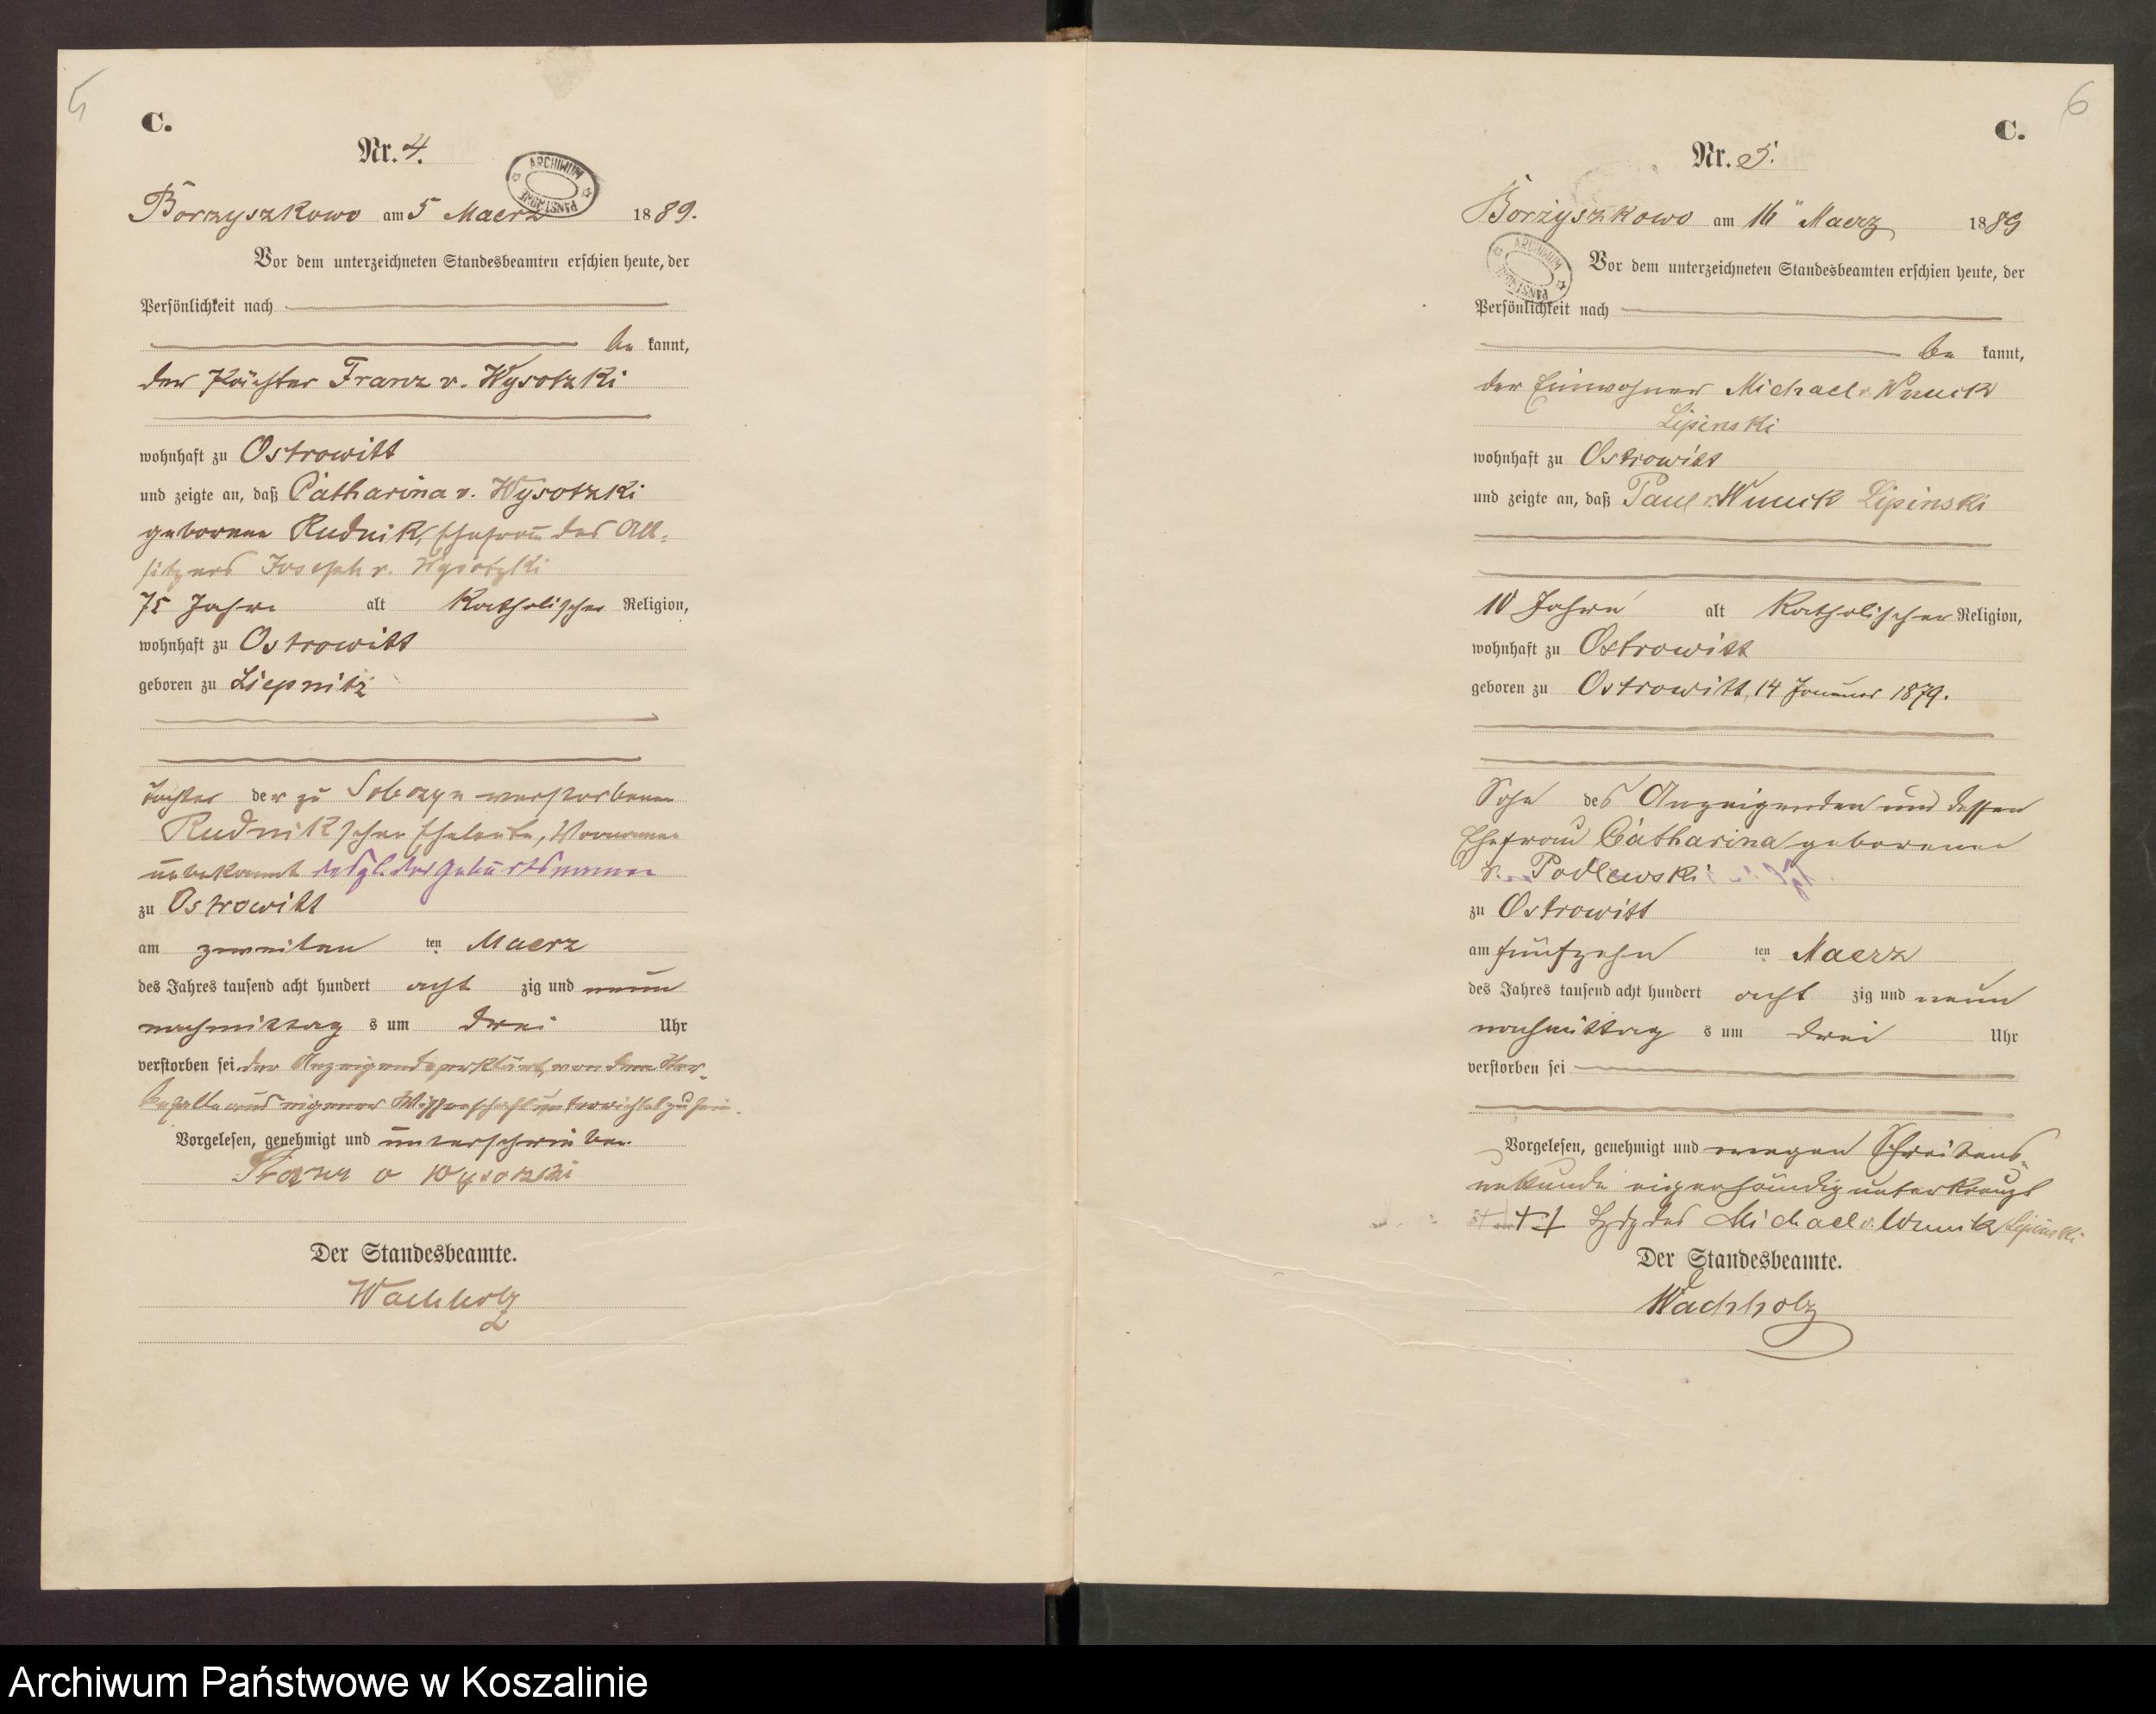 5
C.
Nr. 4.
ARCHIWUM PAŃSTWOWE
Borzyszkowo am 5 Maerz 1889.
Vor dem unterzeichneten Standesbeamten erschien heute, der
Persönlichkeit nach
be kannt,
der Pächter Franz v. Wysotzki
wohnhaft zu Ostrowitt
und zeigte an, daß Catharina v. Wysotzki
geborene Rudnik, Ehefrau des Alt-
sitzers Joseph v. Wysotzki
75 Jahre alt Katholischer Religion,
wohnhaft zu Ostrowitt
geboren zu Liepnitz
Tochter der zu verstorbenen
Rudnik'schen Eheleute, Vornamen
unbekannt desgl. der Geburtsname
zu Ostrowitt
am zweiten ten Maerz
des Jahres tausend acht hundert acht zig und neun
nachmittag s um drei Uhr
verstorben sei der Anzeigende erklärt, von dem Ster-
befalle aus eigener Wissenschaft unterrichtet zu sein.
Vorgelesen, genehmigt und unterschrieben
Franz v Wysotzki
Der Standesbeamte.
Wachholz
6
C.
Nr. 5.
Borzyszkowo am 16 Maerz 1889
ARCHIWUM PAŃSTWOWE
Vor dem unterzeichneten Standesbeamten erschien heute, der
Persönlichkeit nach
be kannt,
der Einwohner Michael v. Wnuck
Lipinski
wohnhaft zu Ostrowitt
und zeigte an, daß Paul v. Wnuck Lipinski
10 Jahre alt Katholischer Religion,
wohnhaft zu Ostrowitt
geboren zu Ostrowitt, 14 Januar 1879.
Sohn des Anzeigenden und dessen
Ehefrau Catharina geborenen
v. Podlewski
zu Ostrowitt
am fünfzehn ten Maerz
des Jahres tausend acht hundert acht zig und neun
nachmittag s um drei Uhr
verstorben sei
Vorgelesen, genehmigt und wegen Schreibens-
unkunde eigenhändig unterkreuzt
+++ Hdz. des Michael v. Wnuck Lipinski
Der Standesbeamte.
Wachholz
Archiwum Państwowe w Koszalinie